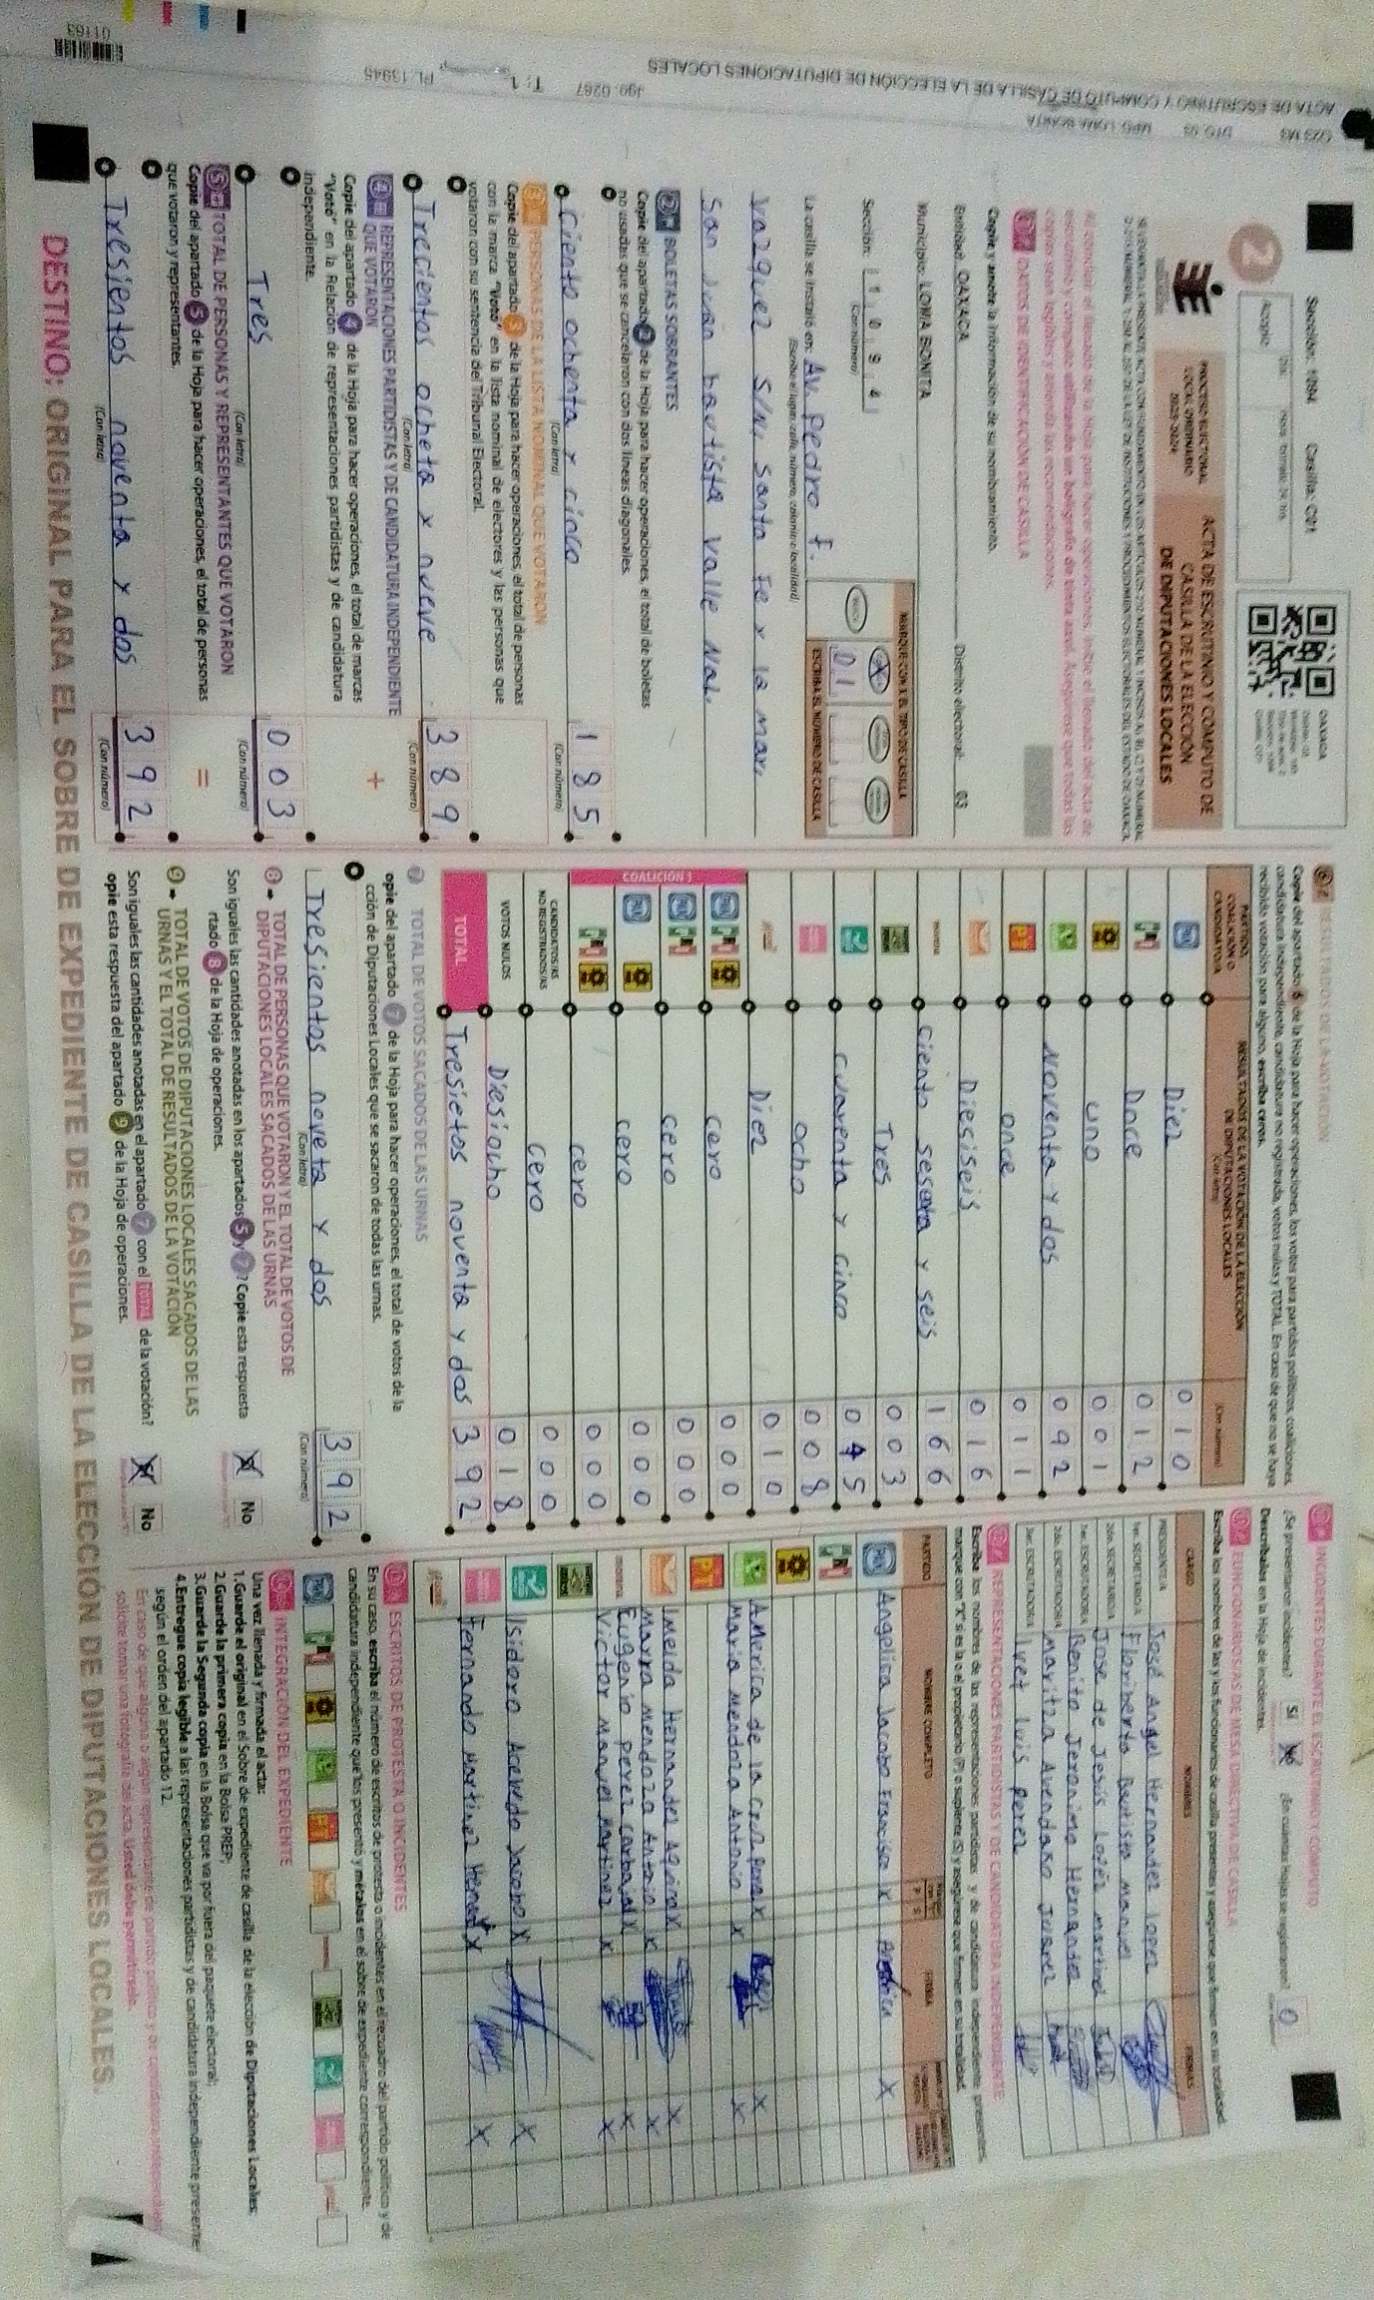 Sección: 1094 Casilla: C01
OAXACA
2
Acopio
PROCESO ELECTORAL
LOCAL ORDINARIO
2023-2024
ACTA DE ESCRUTINIO Y CÓMPUTO DE
CASILLA DE LA ELECCIÓN
DE DIPUTACIONES LOCALES
1 DATOS DE IDENTIFICACIÓN DE CASILLA
Copie y anote la información de su nombramiento.
Entidad: OAXACA Distrito electoral: 03
Municipio: LOMA BONITA
Sección: 1 0 9 4
(Con número)
MARQUE CON X EL TIPO DE CASILLA
ESCRIBA EL NÚMERO DE CASILLA
01
La casilla se instaló en: Av. Pedro F.
Vazquez S/N, Santa Fe y la Mar,
San Juan bautista Valle Nal.
2 BOLETAS SOBRANTES
Copie del apartado 2 de la Hoja para hacer operaciones, el total de boletas
no usadas que se cancelaron con dos líneas diagonales.
Ciento ochenta y cinco 185
(Con letra) (Con número)
3 PERSONAS DE LA LISTA NOMINAL QUE VOTARON
Copie del apartado 3 de la Hoja para hacer operaciones, el total de personas
con la marca "Votó" en la lista nominal de electores y las personas que
votaron con su sentencia del Tribunal Electoral.
Trecientos ocheta y nueve 389
(Con letra) (Con número)
4 REPRESENTACIONES PARTIDISTAS Y DE CANDIDATURA INDEPENDIENTE
QUE VOTARON
+
Copie del apartado 4 de la Hoja para hacer operaciones, el total de marcas
"Votó" en la Relación de representaciones partidistas y de candidatura
independiente.
Tres 003
(Con letra) (Con número)
5 TOTAL DE PERSONAS Y REPRESENTANTES QUE VOTARON
=
Copie del apartado 5 de la Hoja para hacer operaciones, el total de personas
que votaron y representantes.
Tresientos noventa y dos 392
(Con letra) (Con número)
6 RESULTADOS DE LA VOTACIÓN
Copie del apartado 6 de la Hoja para hacer operaciones, los votos para partidos políticos, coaliciones,
candidatura independiente, candidatura no registrada, votos nulos y TOTAL. En caso de que no se haya
recibido votación para alguno, escriba ceros.
PARTIDO,
COALICIÓN O
CANDIDATO/A
RESULTADOS DE LA VOTACIÓN DE LA ELECCIÓN
DE DIPUTACIONES LOCALES
(Con letra) (Con número)
Diez 010
Doce 012
uno 001
Noventa y dos 092
once 011
Diesiseis 016
morena Ciento seseta y seis 166
Tres 003
Cuarenta y cinco 045
ocho 008
Diez 010
COALICIÓN 1
cero 000
cero 000
cero 000
cero 000
CANDIDATOS/AS
NO REGISTRADOS/AS
cero 000
VOTOS NULOS Diesiocho 018
TOTAL Tresietos noventa y dos 392
7 TOTAL DE VOTOS SACADOS DE LAS URNAS
opie del apartado 7 de la Hoja para hacer operaciones, el total de votos de la
cción de Diputaciones Locales que se sacaron de todas las urnas.
Tresientos noveta y dos 392
(Con letra) (Con número)
8 TOTAL DE PERSONAS QUE VOTARON Y EL TOTAL DE VOTOS DE
DIPUTACIONES LOCALES SACADOS DE LAS URNAS
Son iguales las cantidades anotadas en los apartados 5 y 7? Copie esta respuesta
rtado 8 de la Hoja de operaciones.
No
9 TOTAL DE VOTOS DE DIPUTACIONES LOCALES SACADOS DE LAS
URNAS Y EL TOTAL DE RESULTADOS DE LA VOTACIÓN
Son iguales las cantidades anotadas en el apartado 7 con el TOTAL de la votación?
opie esta respuesta del apartado 9 de la Hoja de operaciones.
No
INCIDENTES DURANTE EL ESCRUTINIO Y CÓMPUTO
¿Se presentaron incidentes? Sí ¿En cuántas Hojas se registraron? 0
Descríbalos en la Hoja de incidentes.
FUNCIONARIOS/AS DE MESA DIRECTIVA DE CASILLA
Escriba los nombres de las y los funcionarios de casilla presentes y asegúrese que firmen en su totalidad.
CARGO NOMBRES FIRMAS
PRESIDENTE/A José Angel Hernandez Lopez
1er. SECRETARIO/A Floriberto Bautista Manuel
2do. SECRETARIO/A Jose de Jesús Lopéz martinez
1er. ESCRUTADOR/A Benito Jeronimo Hernandez
2do. ESCRUTADOR/A Maritza Avendaño Juarez
3er. ESCRUTADOR/A Ivet luis perez
REPRESENTACIONES PARTIDISTAS Y DE CANDIDATURA INDEPENDIENTE
Escriba los nombres de las representaciones partidistas y de candidatura independiente presentes,
marque con "X" si es la o el propietario (P) o suplente (S) y asegúrese que firmen en su totalidad.
PARTIDO NOMBRE COMPLETO FIRMA
Angelica Jacobo Francisco X X
America de la Cruz Perez X X
Maria Mendoza Antonio X X
Imelda Hernandez X X
Mayra Mendoza Antonio X X
Eugenio perez Carbajal X X
morena Victor Manuel Martinez X X
Isidoro Acevedo Jacobo X X
Fernando Martinez X X
ESCRITOS DE PROTESTA O INCIDENTES
En su caso, escriba el número de escritos de protesta o incidentes en el recuadro del partido político y de
candidatura independiente que los presentó y métalas en el sobre de expediente correspondiente.
INTEGRACIÓN DEL EXPEDIENTE
Una vez llenada y firmada el acta:
1. Guarde el original en el Sobre de expediente de casilla de la elección de Diputaciones Locales;
2. Guarde la primera copia en la Bolsa PREP;
3. Guarde la Segunda copia en la Bolsa que va por fuera del paquete electoral;
4. Entregue copia legible a las representaciones partidistas y de candidatura independiente presentes
según el orden del apartado 12.
DESTINO: ORIGINAL PARA EL SOBRE DE EXPEDIENTE DE CASILLA DE LA ELECCIÓN DE DIPUTACIONES LOCALES.
ACTA DE ESCRUTINIO Y CÓMPUTO DE CASILLA DE LA ELECCIÓN DE DIPUTACIONES LOCALES
DTO. 03 MPO. LOMA BONITA
Jgo. 0267 T: 1 PL 13945
01163